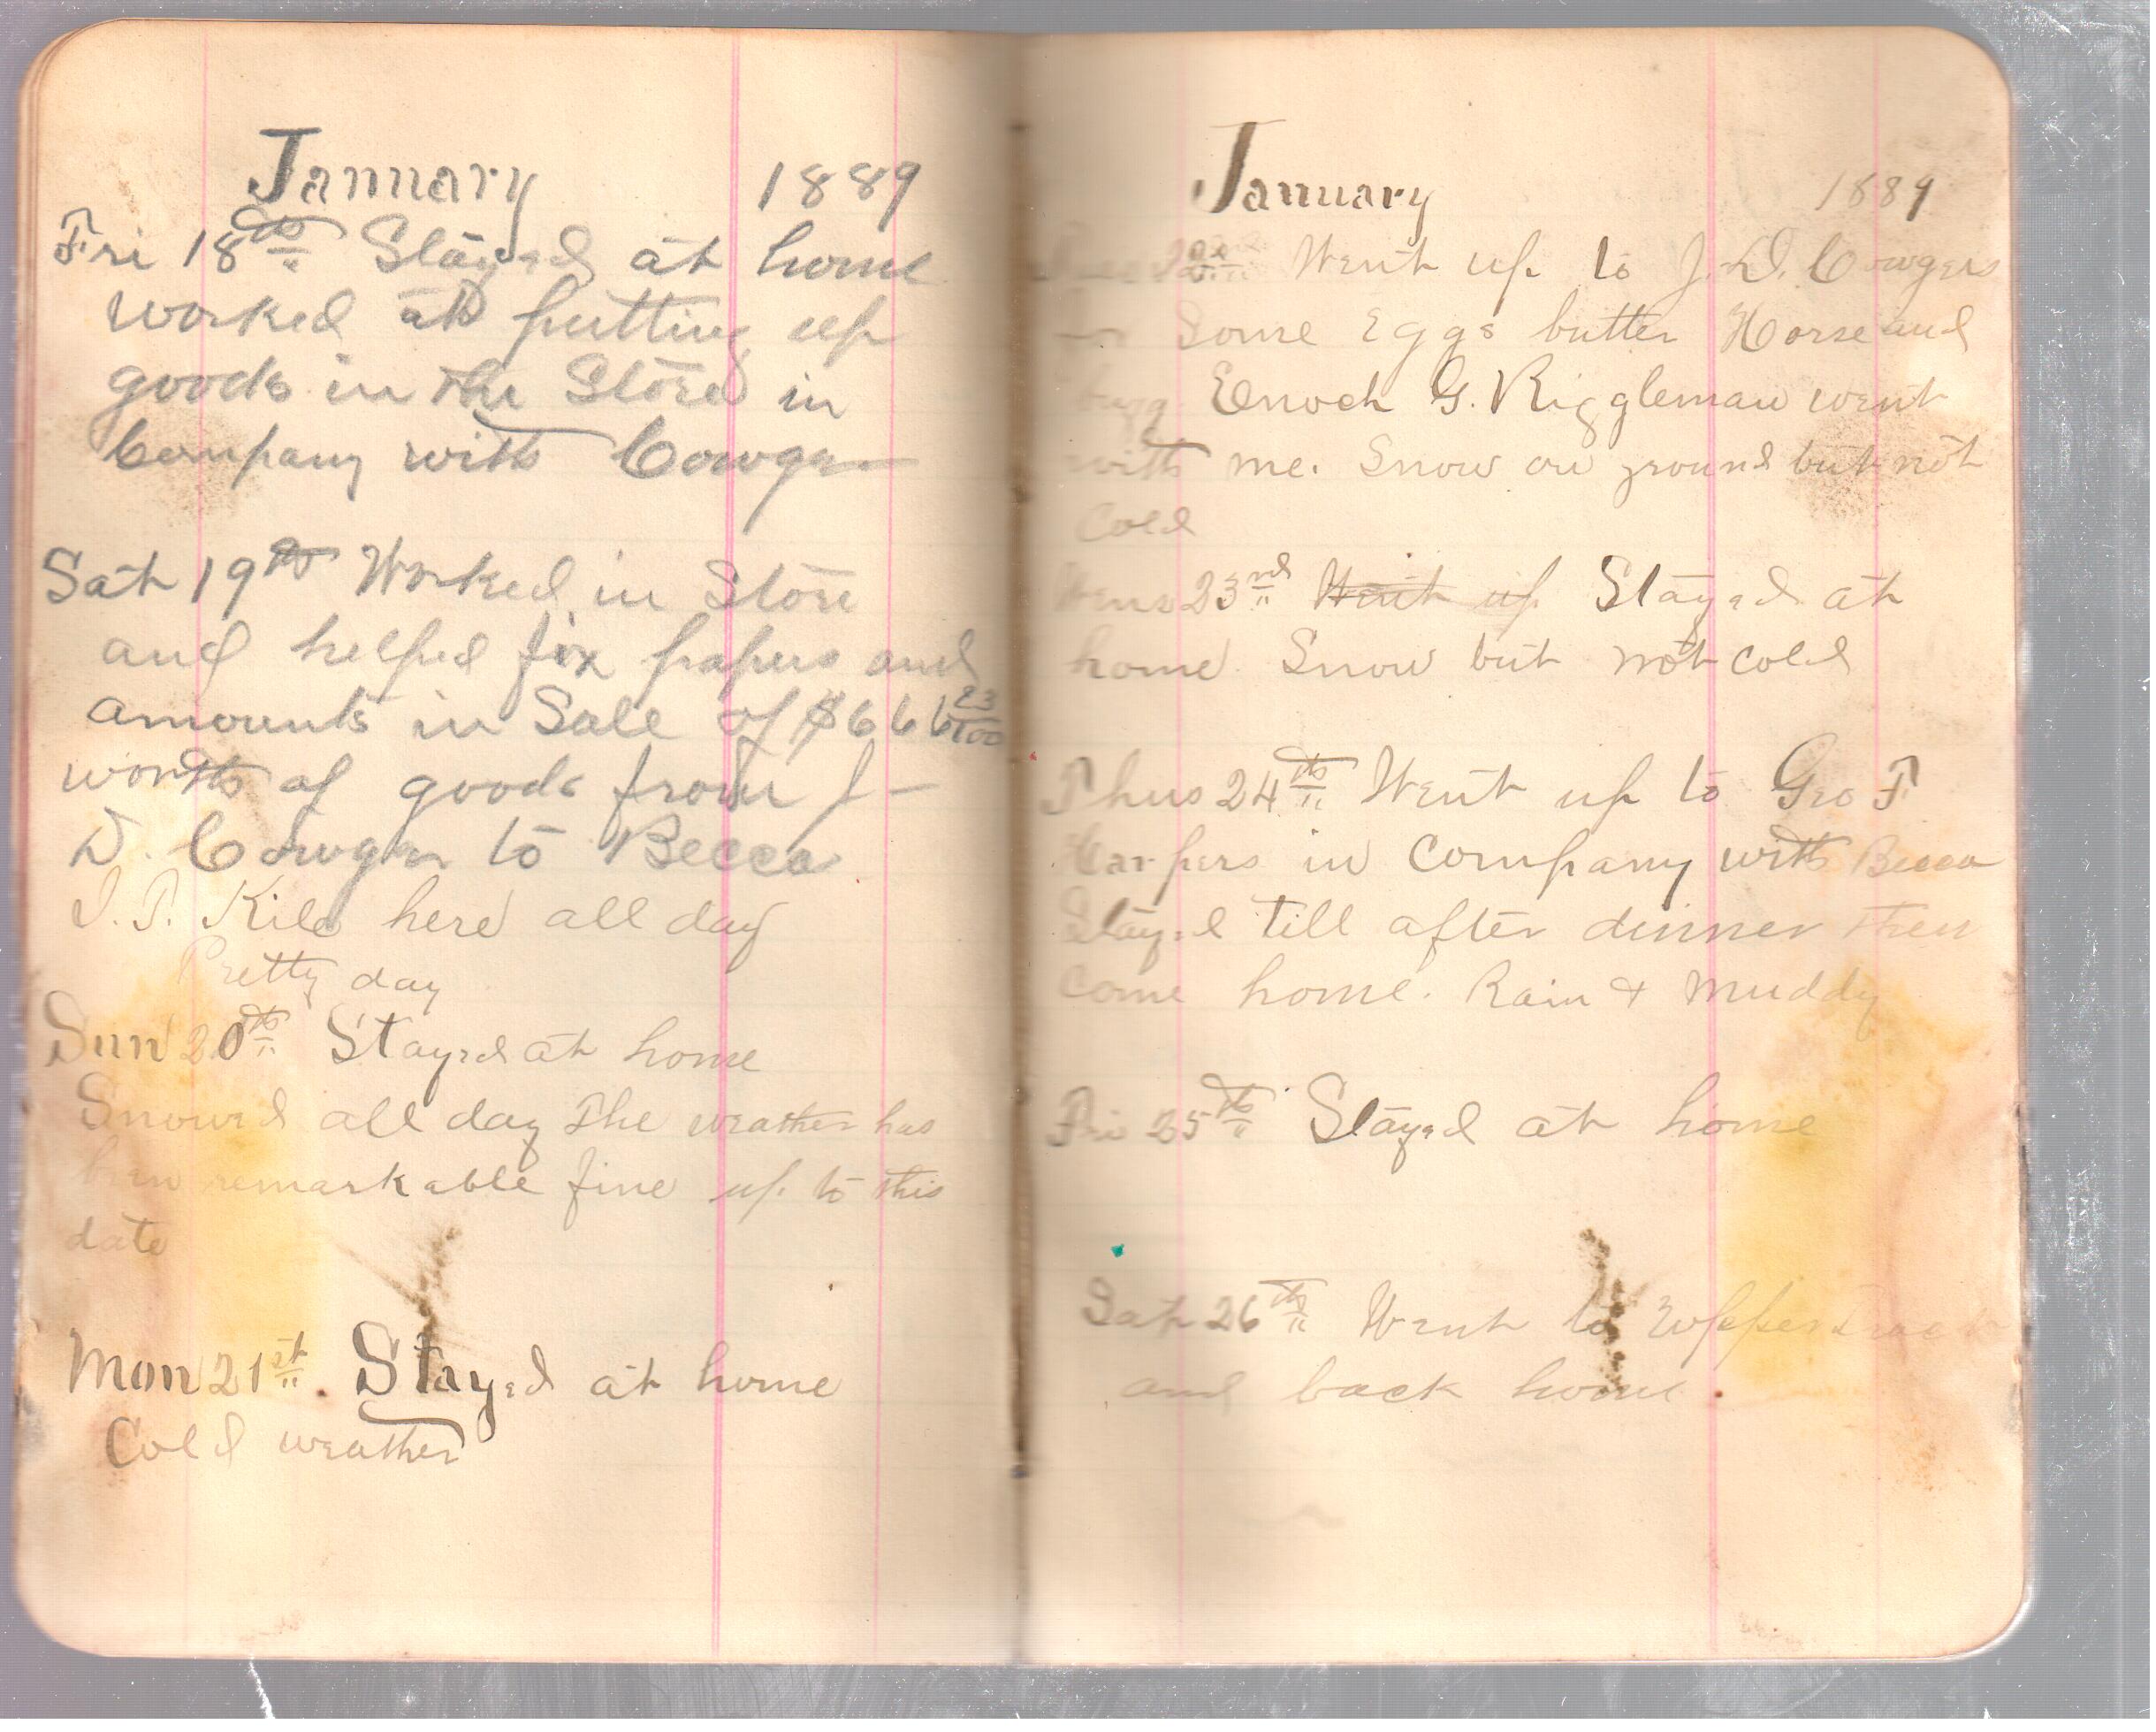 January 1889
Fri 18th Stayed at home
worked at putting up
goods in the Store in
Company with Cowger
Sat 19th Worked in Store
and helped fix papers and
amounts in Sale of $666 23/100
worth of goods from J-
D. Cowger to Becca
I. P. Kile here all day
Pretty day
Sun 20th Stayed at home
Snowed all day The weather has
ben remarkable fine up to this
date
Mon 21st. Stayed at home
Cold weather
January 1889
22nd Went up to J. D. Cowgers
Some Eggs butter Horse and
bugg Enoch G. Riggleman went
with me. Snow on ground but not
Cold
Wens 23rd Went up Stayed at
home. Snow but not cold
Thus 24th Went up to Geo F
Harpers in Company with Becca
Stayed till after dinner then
come home. Rain & Muddy
Fri 25th Stayed at home
Sat 26th Went to Uppertract
and back home.